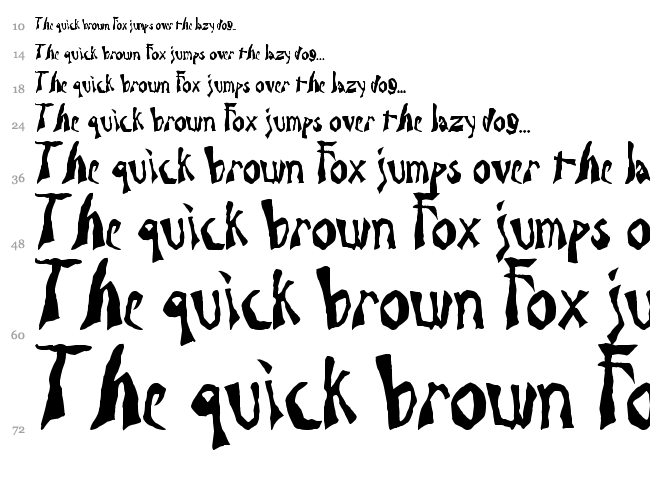 10 The quick brown Fox jumps over the lazy dog...
14 The quick brown Fox jumps over the lazy dog...
18 The quick brown Fox jumps over the lazy dog...
24 The quick brown Fox jumps over the lazy dog...
36 The quick brown Fox jumps over the la
48 The quick brown Fox jumps o
60 The quick brown Fox ju
72 The quick brown Fo